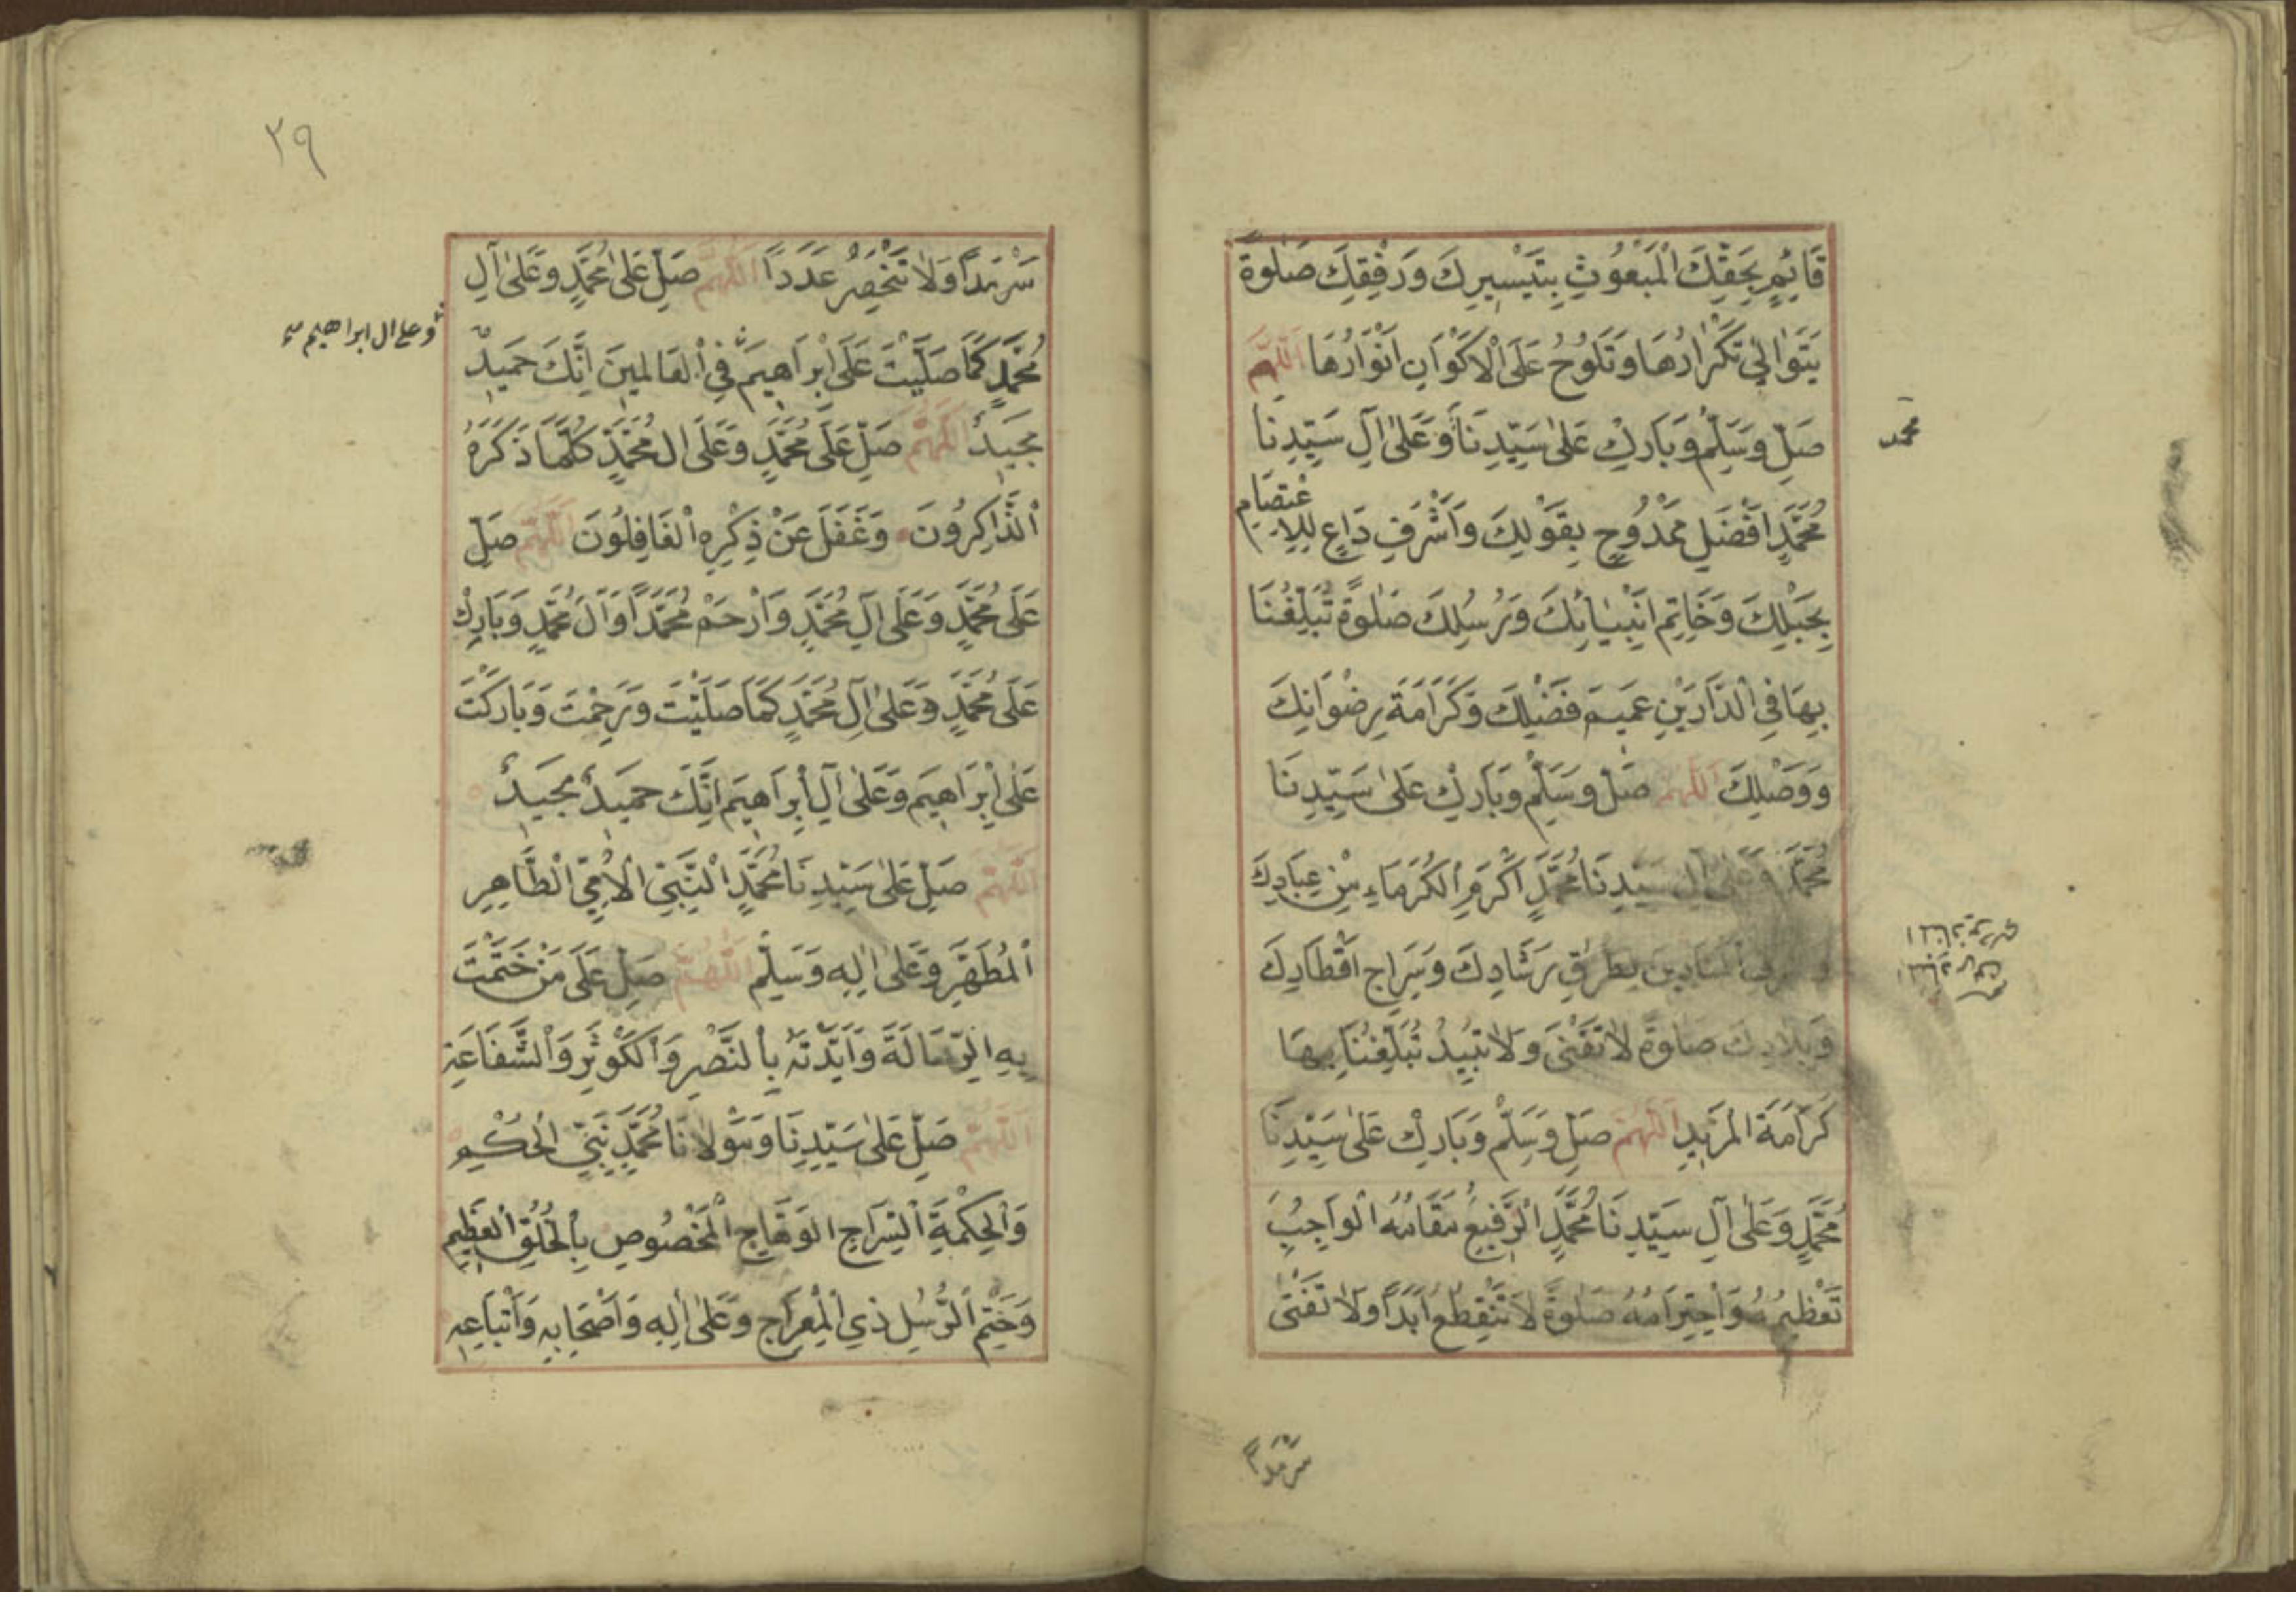 قَائِمٍ بِحَقِّكَ الْمَبْعُوثِ بِتَيْسِيرِكَ وَرِفْقِكَ صَلٰوةً
يَتَوَالٰي تَكْرَارُهَا وَتَلُوحُ عَلَى الْاَكْوَانِ اَنْوَارُهَا اَللّٰهُمَّ
صَلِّ وَسَلِّمْ وَبَارِكْ عَلٰى سَيِّدِنَا وَعَلٰى آلِ سَيِّدِنَا
محمد
مُحَمَّدٍ اَفْضَلِ مَمْدُوحٍ بِقَوْلِكَ وَاَشْرَفِ دَاعٍ لِلِاعْتِصَامِ
بِحَبْلِكَ وَخَاتِمِ اَنْبِيَائِكَ وَرُسُلِكَ صَلٰوةً تُبَلِّغُنَا
بِهَا فِي الدَّارَيْنِ عَمِيمَ فَضْلِكَ وَكَرَامَةَ رِضْوَانِكَ
وَوَصْلِكَ اَللّٰهُمَّ صَلِّ وَسَلِّمْ وَبَارِكْ عَلٰى سَيِّدِنَا
مُحَمَّدٍ وَعَلٰى آلِ سَيِّدِنَا مُحَمَّدٍ اَكْرَمِ الْكُرَمَاءِ مِنْ عِبَادِكَ
وَاَشْرَفِ الْمُنَادِينَ لِطُرُقِ رَشَادِكَ وَسِرَاجِ اَقْطَارِكَ
وَبِلَادِكَ صَلٰوةً لَا تَفْنٰى وَلَا تَبِيدُ تُبَلِّغُنَا بِهَا
كَرَامَةَ الْمَزِيدِ اَللّٰهُمَّ صَلِّ وَسَلِّمْ وَبَارِكْ عَلٰى سَيِّدِنَا
مُحَمَّدٍ وَعَلٰى آلِ سَيِّدِنَا مُحَمَّدٍ الرَّفِيعِ مَقَامُهُ الْوَاجِبِ
تَعْظِيمُهُ وَاحْتِرَامُهُ صَلٰوةً لَا تَنْقَطِعُ اَبَدًا وَلَا تَفْنٰى
سَرْمَدًا
٢٩
سَرْمَدًا وَلَا تَنْحَصِرُ عَدَدًا اَللّٰهُمَّ صَلِّ عَلٰى مُحَمَّدٍ وَعَلٰى آلِ
مُحَمَّدٍ كَمَا صَلَّيْتَ عَلٰى اِبْرَاهِيمَ فِي الْعَالَمِينَ اِنَّكَ حَمِيدٌ
وعلى ال ابراهيم
مَجِيدٌ اَللّٰهُمَّ صَلِّ عَلَى مُحَمَّدٍ وَعَلَى الِ مُحَمَّدٍ كُلَّمَا ذَكَرَهُ
الذَّاكِرُونَ وَغَفَلَ عَنْ ذِكْرِهِ الْغَافِلُونَ اَللّٰهُمَّ صَلِّ
عَلَى مُحَمَّدٍ وَعَلَى آلِ مُحَمَّدٍ وَارْحَمْ مُحَمَّدًا وَآلَ مُحَمَّدٍ وَبَارِكْ
عَلَى مُحَمَّدٍ وَعَلٰى آلِ مُحَمَّدٍ كَمَا صَلَّيْتَ وَرَحِمْتَ وَبَارَكْتَ
عَلٰى اِبْرَاهِيمَ وَعَلٰى آلِ اِبْرَاهِيمَ اِنَّكَ حَمِيدٌ مَجِيدٌ
اَللّٰهُمَّ صَلِّ عَلٰى سَيِّدِنَا مُحَمَّدٍ النَّبِيِّ الْاُمِّيِّ الطَّاهِرِ
الْمُطَهَّرِ وَعَلٰى اٰلِهِ وَسَلِّمْ اَللّٰهُمَّ صَلِّ عَلَى مَنْ خَتَمْتَ
بِهِ الرِّسَالَةَ وَاَيَّدْتَهُ بِالنَّصْرِ وَالْكَوْثَرِ وَالشَّفَاعَةِ
اَللّٰهُمَّ صَلِّ عَلٰى سَيِّدِنَا وَمَوْلَانَا مُحَمَّدٍ نَبِيِّ الْحُكْمِ
وَالْحِكْمَةِ السِّرَاجِ الْوَهَّاجِ الْمَخْصُوصِ بِالْخُلُقِ الْعَظِيمِ
وَخَتْمِ الرُّسُلِ ذِي الْمِعْرَاجِ وَعَلٰى اٰلِهِ وَاَصْحَابِهِ وَاَتْبَاعِهِ